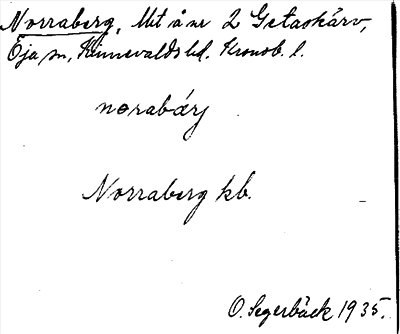 Norraberg, Utt å nr 2 Getaskärv,
Öja sn, Kinnevalds hd. Kronob. l.
norabärj
Norraberg kb.
O. Segerbäck 1935.